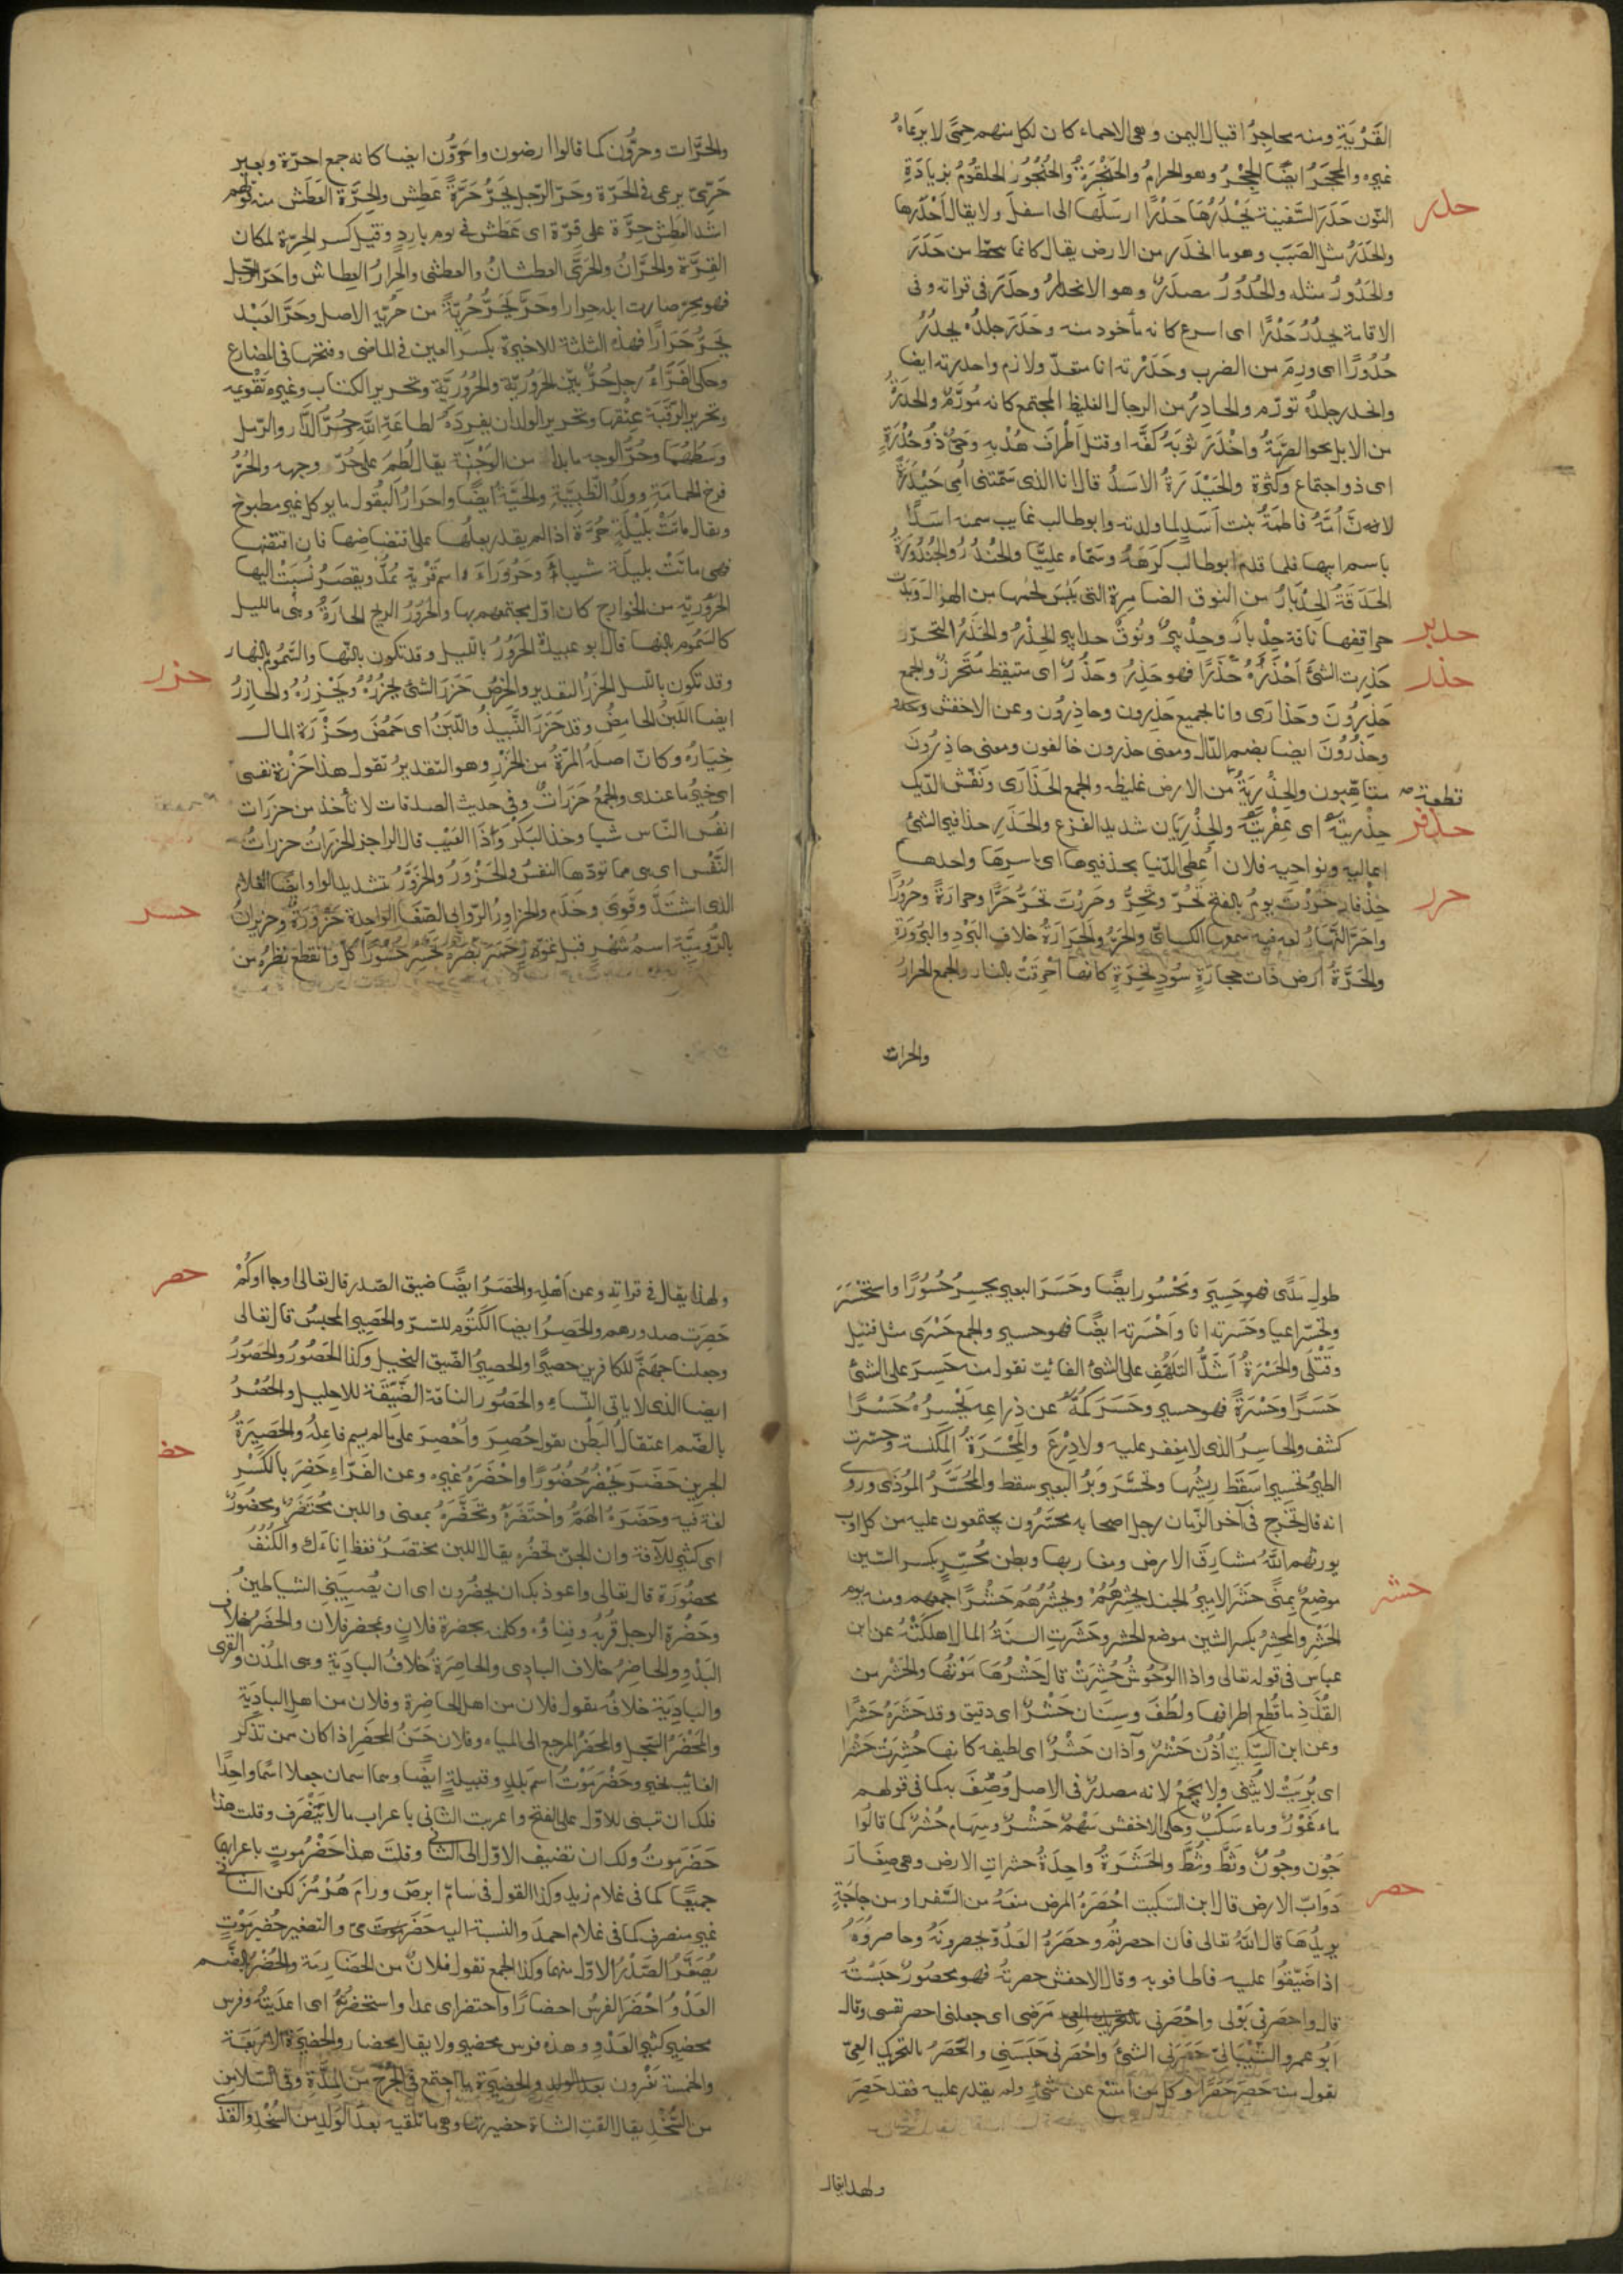 القَرْيَةِ ومنه محاجِرُ اقيال اليمن وهى الاحماء كان لكل منهم حِمًى لا يرعاهُ
غيره والمحجَرُ ايضًا الحِجْرُ وهو الحرامُ والحَنْجَرَةُ والحُنْجُورُ الحلقُومُ بزيادَةِ
حدر
النّون حَدَرَ السَّفينة يَحْدُرُهَا حَدْرًا ارسَلَها الى اسفلَ ولا يقال اَحْدَرها
والحَدَرُ مثل الصَبَب وهو ما انحدَر من الارض يقال كانما يحطّ من حَدَرَ
والحَدُورُ مثله والحُدُورُ مصدَرٌ وهو الانحدارُ وحدَرَ فى قراته وفى
الاقامة يحدُرُ حَدْرًا اى اسرع كانه مأخود منه وحَدَرَ جلدُه يحدُرُ
حُدُورًا اى ورِمَ من الضرب وحَدَرْته انا متعدّ ولازم واحدرته ايضا
وانحدر جلدُه تورّم والحادِرُ من الرجال الغليظ المجتمع كانه مُورَّمٌ والحدرَةُ
من الابل نحو الصِرْمَةُ واحْدَرَ ثوبَهُ كَفَّه او فتل اَطْرافَ هُدْبِهِ وحَىٌّ ذُو حُدْرَةٍ
اى ذو اجتماع وكثرة والحَيْدَرَةُ الاسَدُ قال انا الذى سَمّتنى اُمِى حَيْدَرَةً
لانه اُمَّهُ فاطمةُ بنت اَسَدٍ لما ولدته وابو طالب غايب سمته اسَدًا
باسم ابيها فلما قدم ابو طالب كرَهَهُ وسَمّاه عليًّا والحُنْدُرُ والحُنْدُورَةُ
الحَدَقَةُ الحِدْبَارُ من النوق الضامِرة التى يَبَسَ لحمُها من الهزال وبَدت
حدبر
حراقِفها نَاقة حِدْبارٌ وحِدْبيرٌ ونُوقٌ حدابير الحِذْرُ والحَذَرُ التحرّز
حذر
حَذِرت الشئَ اَحْذَرُهُ حَذَرًا فهو حَذِرٌ وحَذُرٌ اى متيقظ مُتحرزٌ والجمع
حَذِرُونَ وحَذارَى وانا لجميع حَذِرون وحاذِرُون وعن الاخفش
وحَذُرُونَ ايضا بضم الذّال ومعنى حذرون خائفون ومعنى حاذِرُونَ
قطعة صح
متاهّبون والحِذْرِيَةُ من الارض غليظه والجمع الحَذَارَى ونَفّش الدّيك
حذفر
حِذْرِيَتَهُ اى عِفْرِيَتَهُ والحِذْرِيَان شديد الفزع والحَذَرِ حذافير الشئ
اعاليه ونواحيه فلان اُعطى الدّنيا بحذفيرها اى باسرها واحدها
حرر
حِذْفار حَرْدتَ يومُ بالفتح تَحُرّ وتَحِرُّ وحَرِرْتَ تَحَرُّ حَرًّا وحرارَةً وحُرُورًا
واحَرَّ النَّهارُ لغه فيه سمعها الكسائىُّ والحَرُّ والحَرَارَةُ خلاف البَرْدِ والبُرُودَةِ
والحَرَّةُ اَرض ذات حجارَةٍ سُودٍ نخِرَةٍ كانها اُحْرِقَتْ بالنار والجمع الحرارُ
والحرات
والحَرَّات وحرُّون كما قالوا ارضون واحَرّون ايضا كانه جمع احرّة وبعير
حَرِّىّ يرعى فى الحَرّة وحَرّ الرّجل يَحَرُّ حَرَّةً عَطِش والحِرَّة العَطَش منه قولهم
اشد العَطش حِرَّة على قِرّة اى عَطش فى يوم باردٍ وقيل كسر الحِرّة لمكان
القِرّة والحَرَّانُ والحَرَّى العطشانُ والعطشى والحِرارُ العِطاش واحَرّ الرّجل
فهو مُحِرّ صارت ابله حِرارا وحَرّ يَحَرُّ حُرِّيَةً من حُرِّيّهِ الاصل وحَرَّ العَبْد
يَحَرُّ حَرَارًا فهذه الثلثة للاخيرة بكسر العين فى الماضى وفتحها فى المضارع
وحكى الفَرَّاءُ رجل حُرٌّ بيّن الحَرُورِيّةِ والحُرُورِيَّةِ وتحرير الكتاب وغيره تَقْويمه
وتحرير الرّقبَة عِتْقها وتحرير الولد ان يفرِدَهُ لطاعَةِ اللّه وحُرُّ الدَّار والرّمل
وسَطُهُما وحُرُّ الوجه ما بدا من الوَجْنَةِ يقال لُطِمَ على حُرّ وجهه والحُرُّ
فرخ الحمامَةِ وولَدُ الظَّبِيَّةِ والحيّةُ ايضًا واحرارُ البُقُول ما يوكل غير مطبوخٍ
ويقال باتَتْ بليْلَةِ حُرَّة اذا لم يقدر بعلُها على اقتضاضِها فان افتضّها
فهى باتَتْ بليلَة شيباءَ وحَرُورَاءَ اسم قَرْيةٍ يُمدُّ ويقصَرُ نُسِبَتْ اليها
الحَرُورِيّة من الخوارج كان اوّل مجتمعهم بها والحَرُورُ الريح الحارَةُ وهى بالليل
كالسَّمُوم بالنهار قال ابو عبيدة الحَرُورُ بالليل وقد تكون بالنّهار والسَّموم بالنهار
حزر
وقد تكون باللّيل الحَزْرُ التقدير والخرصُ حَزَرَ الشئ يحزُرُهُ ويَحْزِرُهُ والحازِرُ
ايضا اللّبَنُ الحامِضُ وقد حَزَرَ النَّبِيذُ واللّبَنُ اى حَمُضَ وحَزْرَة المال
خِيَارُه وكانّ اصلَهُ المرّةُ من الحَزْرِ وهو التقديرُ تقول هذا حَزْرة نفسى
اى خيرُ ما عندى والجمعُ حَزَرَاتٌ وفى حديث الصدقات لا تأخذ من حزرات
انفُس النّاس شيا وخذ البَكْرَ وذَا العَيْب قال الراجز الحَزَراتُ حزراتُ
النَّفْس اى هى مما تودّها النفسُ والحَزْوَرُ والحَزَوَّرُ بتشديد الواو ايضًا الغلام
حسر
الذى اشتدَّ وقَوِىَ وخَدَم والحزاوِرُ الرّوابى الصّغار الواحِدة حَزْوَرَةٌ وحزيرانُ
بالرُّومِيَّة اسمُ شهْرٍ قبل تموز حَسَر بَصَرُه يَحْسِر حُسُورًا كلّ وانقطع نظرُه من
طولِ مَدًى فهو حَسِير ومَحْسُور ايضًا وحَسَرَ البعير يحسِرُ حُسُورًا واستحْسَرَ
وتحسّر اعيا وحَسَرته انا واَحْسَرته ايضًا فهو حسير والجمع حَسْرَى مثل قتيل
وقَتْلَى والحَسْرَةُ اَشَدُّ التلهُّف على الشئ الفائت تقول منه حَسِرَ على الشئ
حَسَرًا وحَسْرَةً فهو حسير وحَسَرَ كُمَّهُ عن ذِراعِهِ يَحْسِرُهُ حَسْرًا
كشف والحاسِرُ الذى لا مِغفر عليه ولا دِرْعَ والمِحْسَرَةُ المِكنسة وحسّرت
الطيرُ تحسِيرا سَقَط ريشُها وتحَسَّرَ وَبَرُ البعير سقط والمُحَسَّرُ المُوْذَى وروى
انه قال يَخْرج فى آخر الزّمان رجل اصحابه محسَّرُون يجتمعون عليه من كل اوب
يورثهم اللّهُ مشارِقَ الارض ومغاربها وبطن مُحسِّرٍ بكسر السّين
حشر
موضِعٌ بِمِنًى حشر الاميرُ الجند يحشِرُهُمْ ويحشُرُهُم حَشْرًا جمعهم ومنه يوم
الحَشْرِ والمحشِرُ بكسر الشين موضع الحشر وحَشَرَتِ السنَةُ المال اهلكَتْهُ عن ابن
عباس فى قوله تعالى واذا الوُحُوشُ حُشِرَتْ قال حَشْرُهَا مَوْتُها والحَشْر من
القُذَذِ ما قُطِع اطرافها ولطُفَ وسِنَان حَشْرٌ اى دقيق وقد حَشَرَهُ حَشْرًا
وعن ابن السِكّيتِ اُذُن حَشْرٌ وآذان حَشْرٌ اى لطيفه كانها حُشِرَتْ حَشْرا
اى بُرِيَتْ لا يُثنى ولا يجمَعُ لانه مصدرٌ فى الاصل وُصِفَ به كما فى قولهم
ماء غَوْرٌ وماء سَكْبٌ وحكى الاخفش سَهْمٌ حَشْرٌ وسِهام حُشْرٌ كما قالوا
جَون وجُونٌ وثَطٌّ وثُطٌّ والحَشَرَةُ واحِدَةُ حشراتِ الارض وهى صِغارَ
حصر
دوابّ الارض قال ابن السكيت احْصَرَهُ المرض منعَهُ من السَّفر او من حاجَةٍ
يريدُهَا قال اللّهُ تعالى فان احصرتُم وحصَرَهُ العَدُوّ يحصرونَهُ وحاصروُهُ
اذا ضَيّقُوا عليه فاطافوبه وقال الاحفش حصرتُه فهو محصُورٌ حَبَسْتُه
قال واحصرنِى بَوْلى واحْصَرَنى مَرَضى اى جعلنى احصر نفسى وقال
ابُو عمرو الشّيْبَانِىّ حَصَرَنى الشئُ واحْصَرنى حَبَسَنى والحَصَرُ بالتحرِيكِ العِىّ
تقول منه حَصِرَ حَصَرًا وكل من امتنع عن شئٍ ولم يقدر عليه فقد حَصِرَ
ولهذا يقال
حصر
ولهذا يقال فى قراتِهِ وعن اَهْلِهِ والحَصَرُ ايضًا ضيق الصّدر قال تعالى اوجااوكُمْ
حَصِرَت صدورهم والحَصِرُ ايضا الكَتُوم للسّرّ والحَصِير المحبسُ قال تعالى
وجعلنا جهَنَّمَ للكافرين حصيرًا والحصيرُ الضّيق البخيل وكذا الحَصُورُ والحَصُورُ
ايضا الذى لا ياتى النّساءِ والحَصُور الناقة الضّيّقَة للاحليل والحُصْرُ
حضر
بالضّم اعتقالُ البَطْن تقول حُصِرَ واُحْصِرَ على مالم يسم فاعِلُه والحَصِيرَةُ
الجرين حَضَرَ يَحْضُرُ حُضُورًا واحْضَرَهُ غيره وعن الفَرّاءِ حَضِرَ بالكَسْرِ
لغة فيه وحَضَرَهُ الهَمُّ واحْتَضَرَهُ وتَحَضَّرَهُ بمعنى واللبن مُحْتَضَرٌ ومحضُورٌ
اى كثير للآفة وان الجنّ تحضُره يقال اللبن محتضَرٌ فغط اِناءك والكُنُفُ
محضُورَة قال تعالى واعوذ بك ان يحضُرون اى ان يُصِيبَنى الشياطينُ
وحَضْرَة الرجل قُرْبُه وفِناؤه وكلمه بحضرة فلانٍ وبمحضر فلان والحضَرُ خلاف
البَدْوِ والحاضِرُ خلاف البادِى والحاضِرَةُ خلافُ البادِيَةِ وهى المُدُن والقرى
والبادِيَة خلافُه تقول فلان من اهل الحاضِرَة وفلان من اهلِ البادِيَةِ
والمَحْضَرُ السِّجل والمحضَرُ المرجع الى المياه وفلان حَسَنُ المحضَر اذا كان ممن تذكر
الغائب بخير وحَضْرَمَوْتُ اسم بلدٍ وقبيلةٍ ايضًا وهما اسمان جعلا اسمًا واحدًا
فلك ان تبنى للاوّل على الفتح واعربت الثانى باعراب مالا يَنْصَرف وقلت هذا
حَضرَموتُ ولك ان تضيف الاوّل الى الثانى وقلتَ هذا حَضْرُموتٍ باعرابها
جميعًا كما فى غلام زيد وكذا القول فى سامّ ابرصَ ورامَ هُرْمُزَ لكن الثانى
غير منصرف كما فى غلام احمدَ والنسبة اليه حَضرمىّ والتصغير حُضَيرَمَوْتٍ
يُصَغَّرُ الصَّدْرُ الاوّل منهما وكذا الجمع تقول فلانٌ من الحَضَارِمَة والحُضْرُ بالضّم
العَدْوُ احْضَرَ الفرسُ احضارًا واحتضر اى عدا واستحضرتُهُ اى اعدَيتُهُ وفرس
محضير كثير العَدْوِ وهذه فرس محضير ولا يقال محضار والحَضيرَة الاربَعَة
والخمسة يَغْزون والحضيرة ما اجتمع فى الجُرْحِ من المِدَّةِ وفى السّلا من
من السُّخْدِ يقال القت الشاة حضيرتها وهى ما تلقيه بعد الولَد من السُّخْدِ والقَذَى